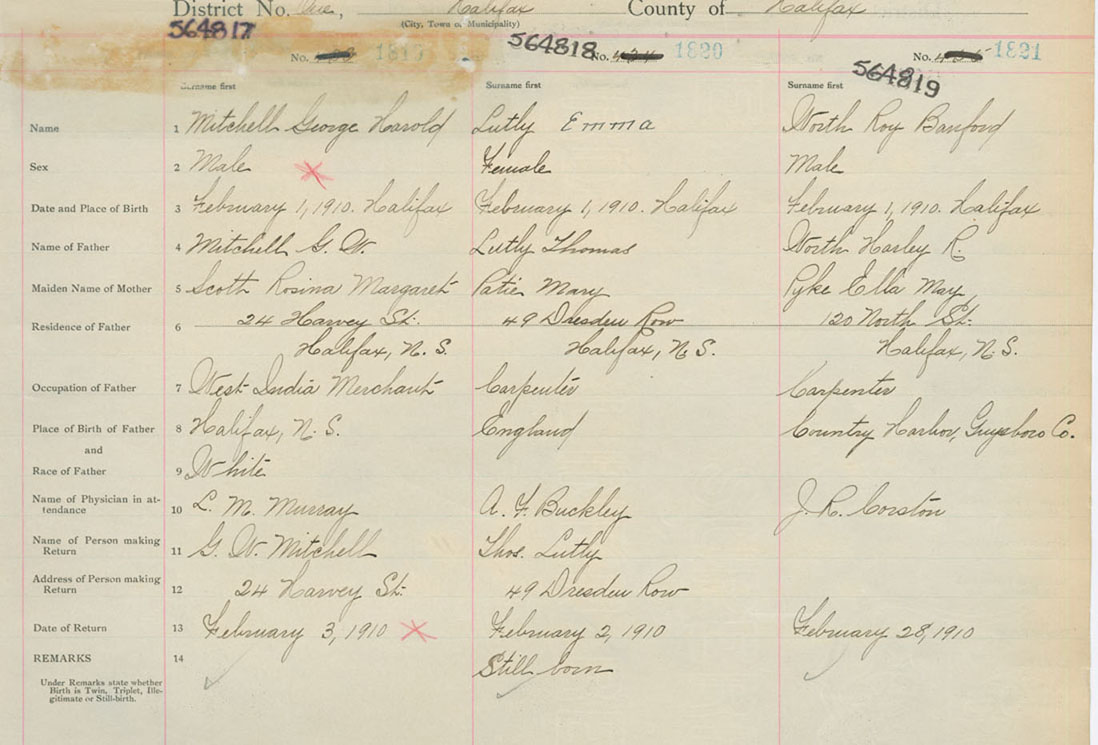 District No. One, Halifax County of Halifax
(City, Town or Municipality)
564817 564818 564819
No. 1819 No. 1820 No. 1821
Surname first Surname first Surname first
Name 1 Mitchell George Harold Lutly Emma Worth Roy Banford
Sex 2 Male Female Male
Date and Place of Birth 3 February 1, 1910. Halifax February 1, 1910. Halifax February 1, 1910. Halifax
Name of Father 4 Mitchell G. W. Lutly Thomas Worth Harley R.
Maiden Name of Mother 5 Scott Rosina Margaret Patie Mary Pyke Ella May
Residence of Father 6 24 Harvey St. 49 Dresden Row 120 North St.
Halifax, N. S. Halifax, N. S. Halifax, N. S.
Occupation of Father 7 West India Merchant Carpenter Carpenter
Place of Birth of Father 8 Halifax, N. S. England Country Harbor, Guysboro Co.
and
Race of Father 9 White
Name of Physician in at-
tendance 10 L. M. Murray A. F. Buckley J. R. Corston
Name of Person making
Return 11 G. W. Mitchell Thos. Lutly
Address of Person making
Return 12 24 Harvey St. 49 Dresden Row
Date of Return 13 February 3, 1910 February 2, 1910 February 28, 1910
REMARKS 14 Still born
Under Remarks state whether
Birth is Twin, Triplet, Ille-
gitimate or Still-birth.